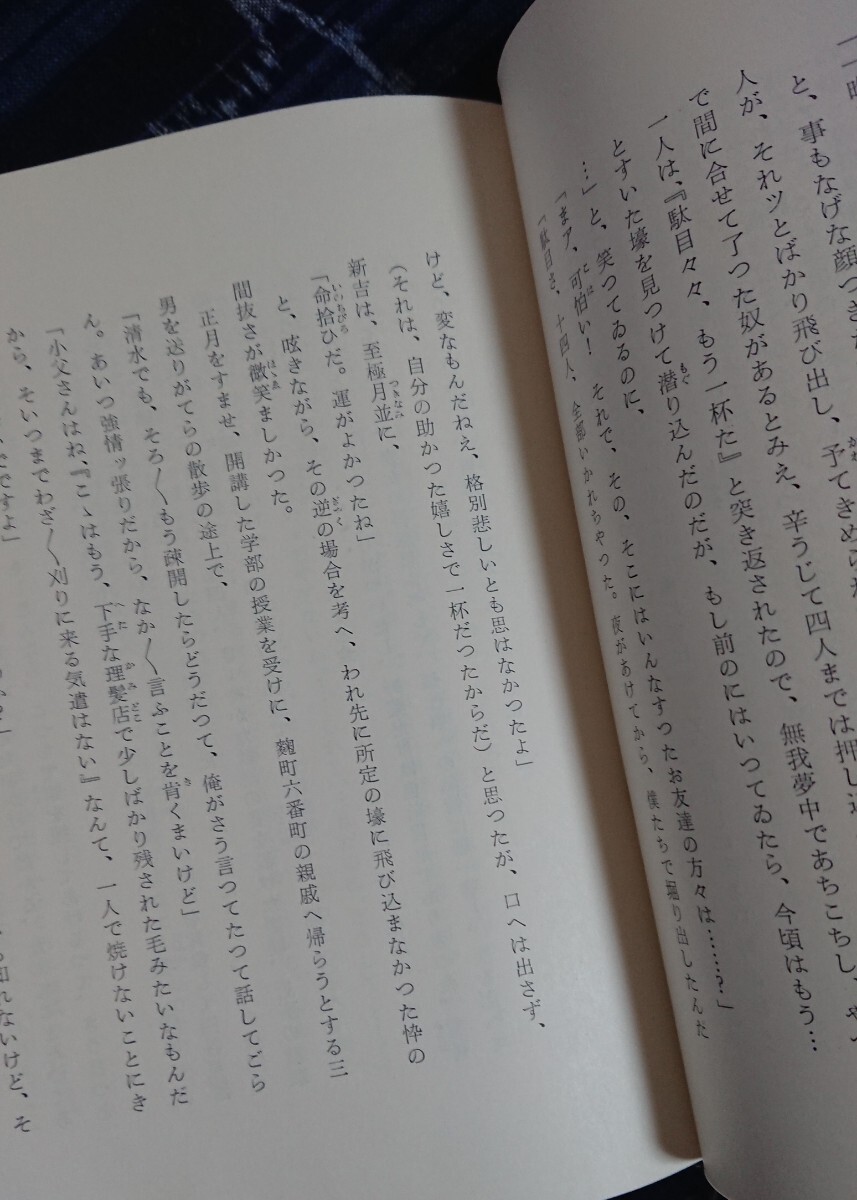 と、事もなげな顔つきだ
人が、それツとばかり飛び出し、予てきめられ
で間に合せて了つた奴があるとみえ、辛うじて四人までは押し
一人は、『駄目々々、もう一杯だ』と突き返されたので、無我夢中であちこちし、や
とすいた壕を見つけて潜り込んだのだが、もし前のにはいつてゐたら、今頃はもう…
…」と、笑つてゐるのに、
「まア、可怕い！ それで、その、そこにはいんなすつたお友達の方々は……?」
「駄目さ、十四人、全部いかれちやつた。夜があけてから、僕たちで掘り出したんだ
けど、変なもんだねえ、格別悲しいとも思はなかつたよ」
（それは、自分の助かつた嬉しさで一杯だつたからだ）と思つたが、口へは出さず、
新吉は、至極月並に、
「命拾ひだ。運がよかつたね」
と、呟きながら、その逆の場合を考へ、われ先に所定の壕に飛び込まなかつた悴の
間抜さが微笑ましかつた。
正月をすませ、開講した学部の授業を受けに、麹町六番町の親戚へ帰らうとする三
男を送りがてらの散歩の途上で、
「清水でも、そろ〳〵もう疎開したらどうだつて、俺がさう言つてたつて話してごら
ん。あいつ強情ッ張りだから、なか〳〵言ふことを肯くまいけど」
「小父さんはね、『こゝはもう、下手な理髪店で少しばかり残された毛みたいなもんだ
から、そいつまでわざ〳〵刈りに来る気遣はない』なんて、一人で焼けないことにき
ですよ」
知れないけど、そ